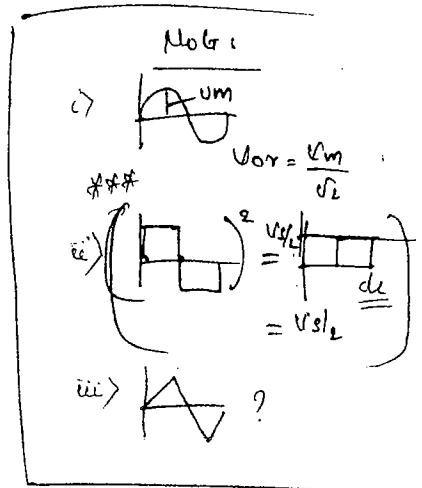 Note:
i>
Vm
Vor = Vm/√2
***
ii> ( )² = Vs/2 dc
= Vs/2
iii> ?